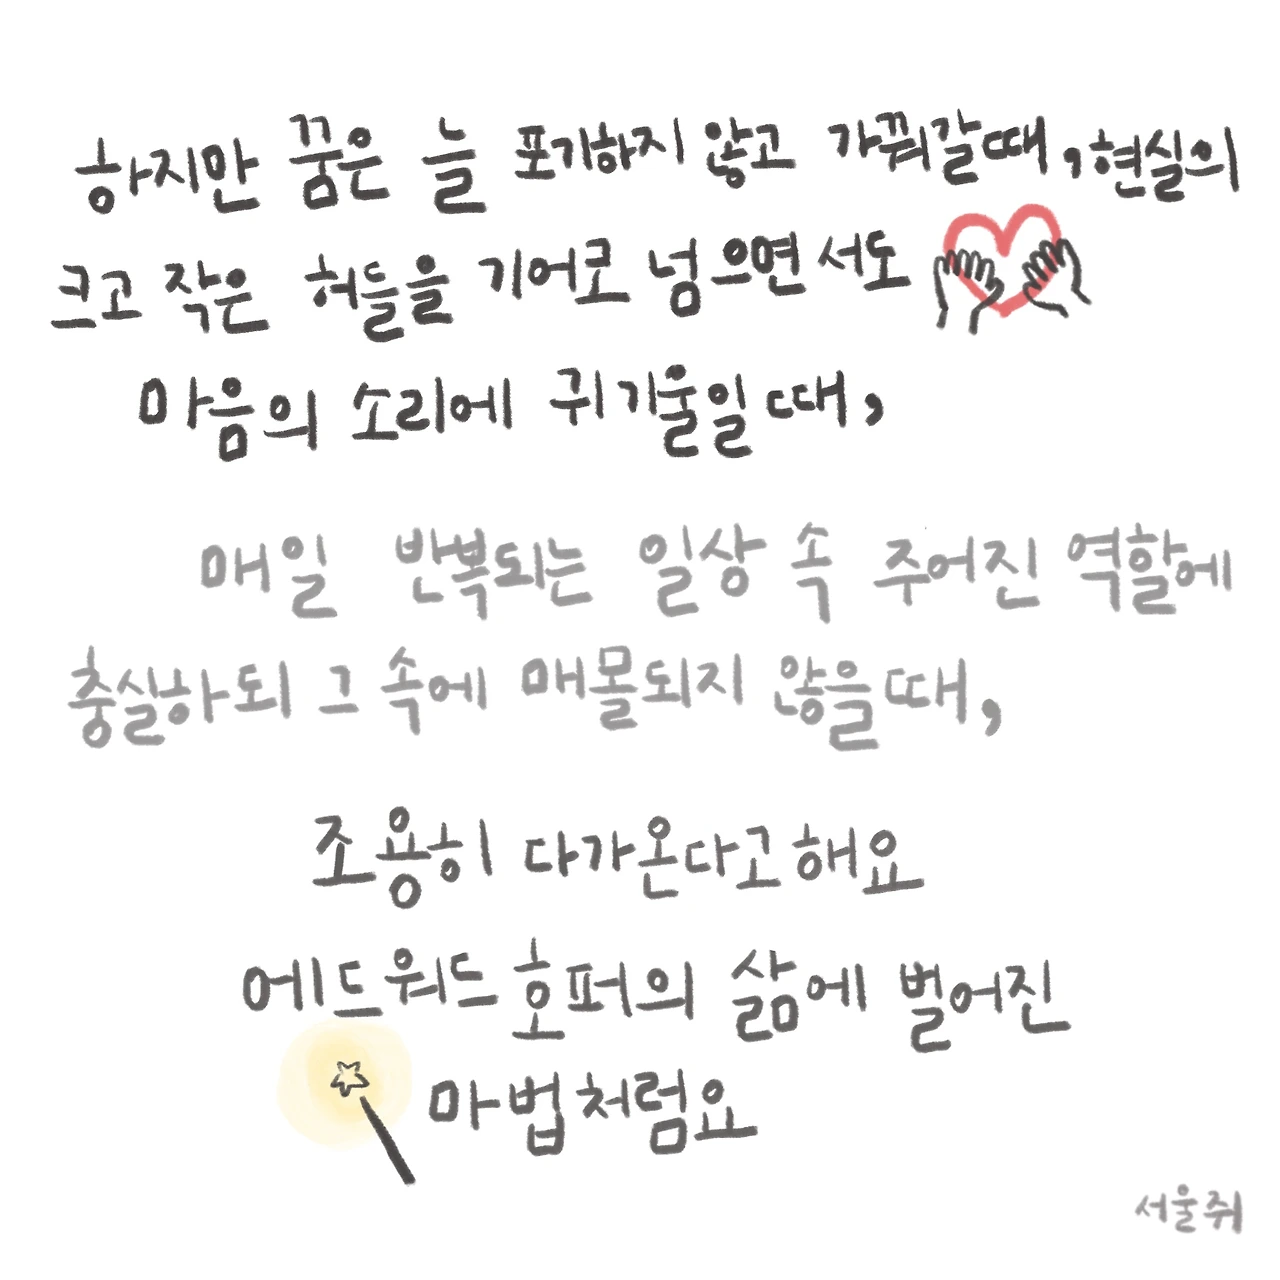 하지만 꿈은 늘 포기하지 않고 가꿔갈때, 현실의
크고 작은 허들을 기어코 넘으면서도
마음의 소리에 귀 기울일 때,
매일 반복되는 일상 속 주어진 역할에
충실하되 그 속에 매몰되지 않을때,
조용히 다가온다고 해요
에드워드 호퍼의 삶에 벌어진
마법처럼요
서울쥐